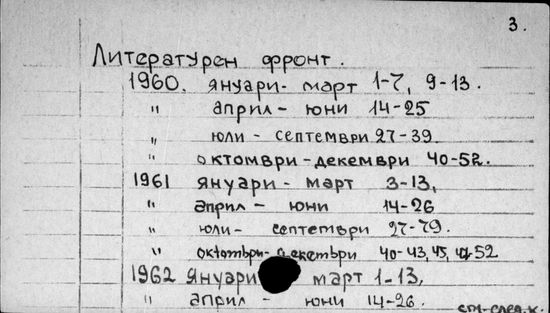 3.
Литературен фронт.
1960. януари - март 1-7, 9-13.
" април - юни 14-25
" юли - септември 27-39.
" октомври - декември 40-52.
1961 януари - март 3-13,
" април - юни 14-26
" юли - септември 27-79.
" октомври - декември 40-43, 45, 47-52
1962 януари март 1-13,
" април - юни 14-26.